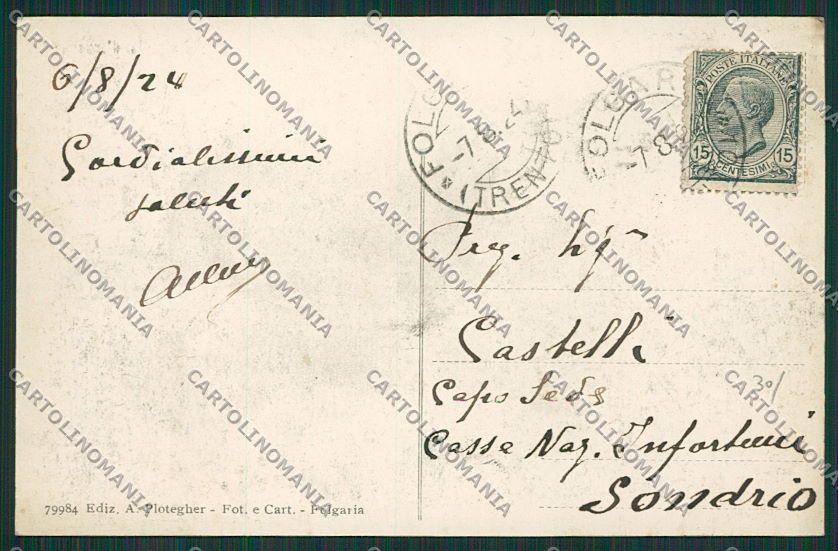 6/8/24
Cordialissimi
saluti
FOLGAR
-7.8.24
(TRENTO)
FOLGAR
-7.8.2
POSTE ITALIANE
15 15
CENTESIMI
Preg. Sigr
Castelli
Capo Sede
Cassa Naz. Infortuni
Sondrio
30/
79984 Ediz. A. Plotegher - Fot. e Cart. - Folgaria
CARTOLINOMANIA